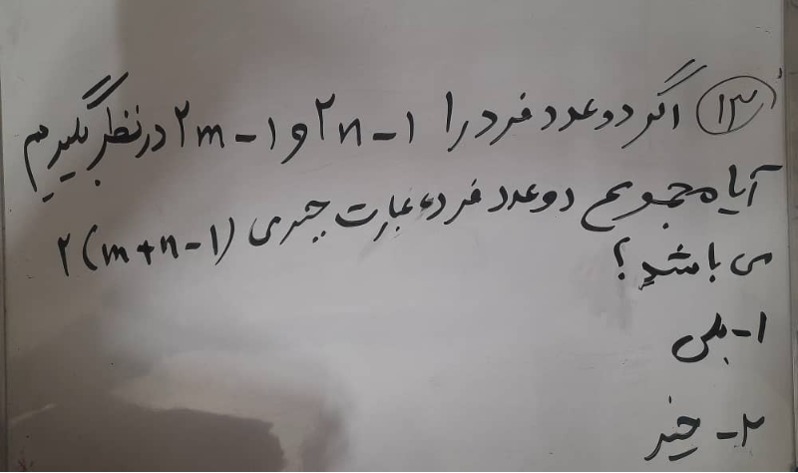 ۱۳) اگر دو عدد فرد را ۲n-۱ و ۲m-۱ در نظر بگیریم
آیا مجموع دو عدد فرد، عبارت جبری ۲(m+n-۱)
می باشد؟
۱- بلی
۲- خیر